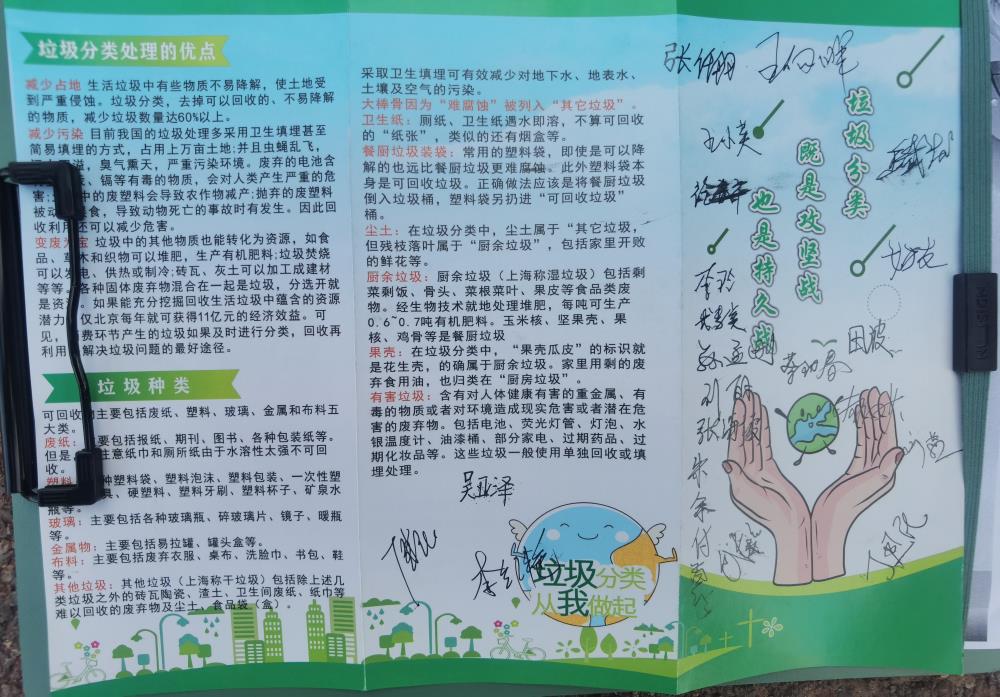 垃圾分类处理的优点
减少占地 生活垃圾中有些物质不易降解，使土地受
到严重侵蚀。垃圾分类，去掉可以回收的、不易降解
的物质，减少垃圾数量达60%以上。
减少污染 目前我国的垃圾处理多采用卫生填埋甚至
简易填埋的方式，占用上万亩土地;并且虫蝇乱飞，
溢，臭气熏天，严重污染环境。废弃的电池含
、镉等有毒的物质，会对人类产生严重的危
害;土 中的废塑料会导致农作物减产;抛弃的废塑料
被动 食，导致动物死亡的事故时有发生。因此回
收利 还可以减少危害。
变废为宝 垃圾中的其他物质也能转化为资源，如食
品、草木和织物可以堆肥，生产有机肥料;垃圾焚烧
可以发电、供热或制冷;砖瓦、灰土可以加工成建材
等等。各种固体废弃物混合在一起是垃圾，分选开就
是资 。如果能充分挖掘回收生活垃圾中蕴含的资源
潜力 仅北京每年就可获得11亿元的经济效益。可
见， 费环节产生的垃圾如果及时进行分类，回收再
利用 解决垃圾问题的最好途径。
垃圾种类
可回收物主要包括废纸、塑料、玻璃、金属和布料五
大类。
废纸：主要包括报纸、期刊、图书、各种包装纸等。
但是 注意纸巾和厕所纸由于水溶性太强不可回
收。
塑料 种塑料袋、塑料泡沫、塑料包装、一次性塑
具、硬塑料、塑料牙刷、塑料杯子、矿泉水
瓶等。
玻璃：主要包括各种玻璃瓶、碎玻璃片、镜子、暖瓶
等。
金属物：主要包括易拉罐、罐头盒等。
布料：主要包括废弃衣服、桌布、洗脸巾、书包、鞋
等。
其他垃圾：其他垃圾（上海称干垃圾）包括除上述几
类垃圾之外的砖瓦陶瓷、渣土、卫生间废纸、纸巾等
难以回收的废弃物及尘土、食品袋（盒）。
采取卫生填埋可有效减少对地下水、地表水、
土壤及空气的污染。
大棒骨因为“难腐蚀”被列入“其它垃圾”。
卫生纸：厕纸、卫生纸遇水即溶，不算可回收
的“纸张”，类似的还有烟盒等。
餐厨垃圾装袋：常用的塑料袋，即使是可以降
解的也远比餐厨垃圾更难腐蚀。此外塑料袋本
身是可回收垃圾。正确做法应该是将餐厨垃圾
倒入垃圾桶，塑料袋另扔进“可回收垃圾”
桶。
尘土：在垃圾分类中，尘土属于“其它垃圾，
但残枝落叶属于“厨余垃圾”，包括家里开败
的鲜花等。
厨余垃圾：厨余垃圾（上海称湿垃圾）包括剩
菜剩饭、骨头、菜根菜叶、果皮等食品类废
物。经生物技术就地处理堆肥，每吨可生产
0.6~0.7吨有机肥料。玉米核、坚果壳、果
核、鸡骨等是餐厨垃圾
果壳：在垃圾分类中，“果壳瓜皮”的标识就
是花生壳，的确属于厨余垃圾。家里用剩的废
弃食用油，也归类在“厨房垃圾”。
有害垃圾：含有对人体健康有害的重金属、有
毒的物质或者对环境造成现实危害或者潜在危
害的废弃物。包括电池、荧光灯管、灯泡、水
银温度计、油漆桶、部分家电、过期药品、过
期化妆品等。这些垃圾一般使用单独回收或填
埋处理。
吴亚泽
垃圾分类
从我做起
垃圾分类
既是攻坚战
也是持久战
王小英
李玲
田波